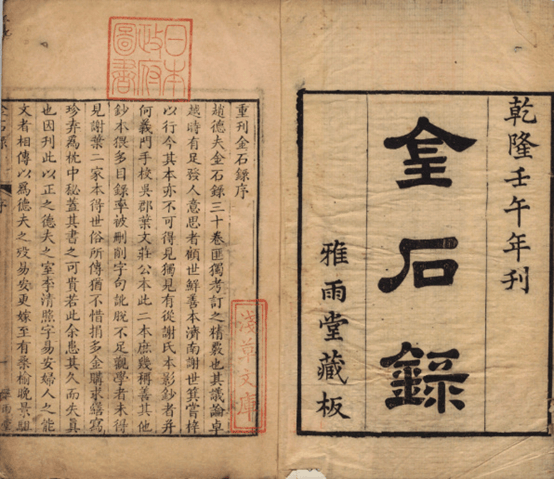 乾隆壬午年刊
金石錄
雅雨堂藏板
日本政府圖書
重刊金石錄序
趙德夫金石錄三十卷匪獨考訂之精覈也其議論卓
越時有足發人意思者顧世鮮善本濟南謝世箕嘗梓
以行今其本亦不可得見獨見有從謝氏本影鈔者并
何義門手校吳郡葉文莊公本此二本庶幾稱善其他
鈔本猥多目錄率被刪削字句訛脫不足觀學者未得
見謝葉二家本得世俗所傳猶不惜捐多金購求繕寫
珍弆爲枕中秘蓋其書之可貴若此余患其久而失真
也因刊此以正之德夫之室李清照字易安婦人之能
文者相傳以爲德夫之歿易安更嫁至有桑榆晚景駔
淺草文庫
雅雨堂